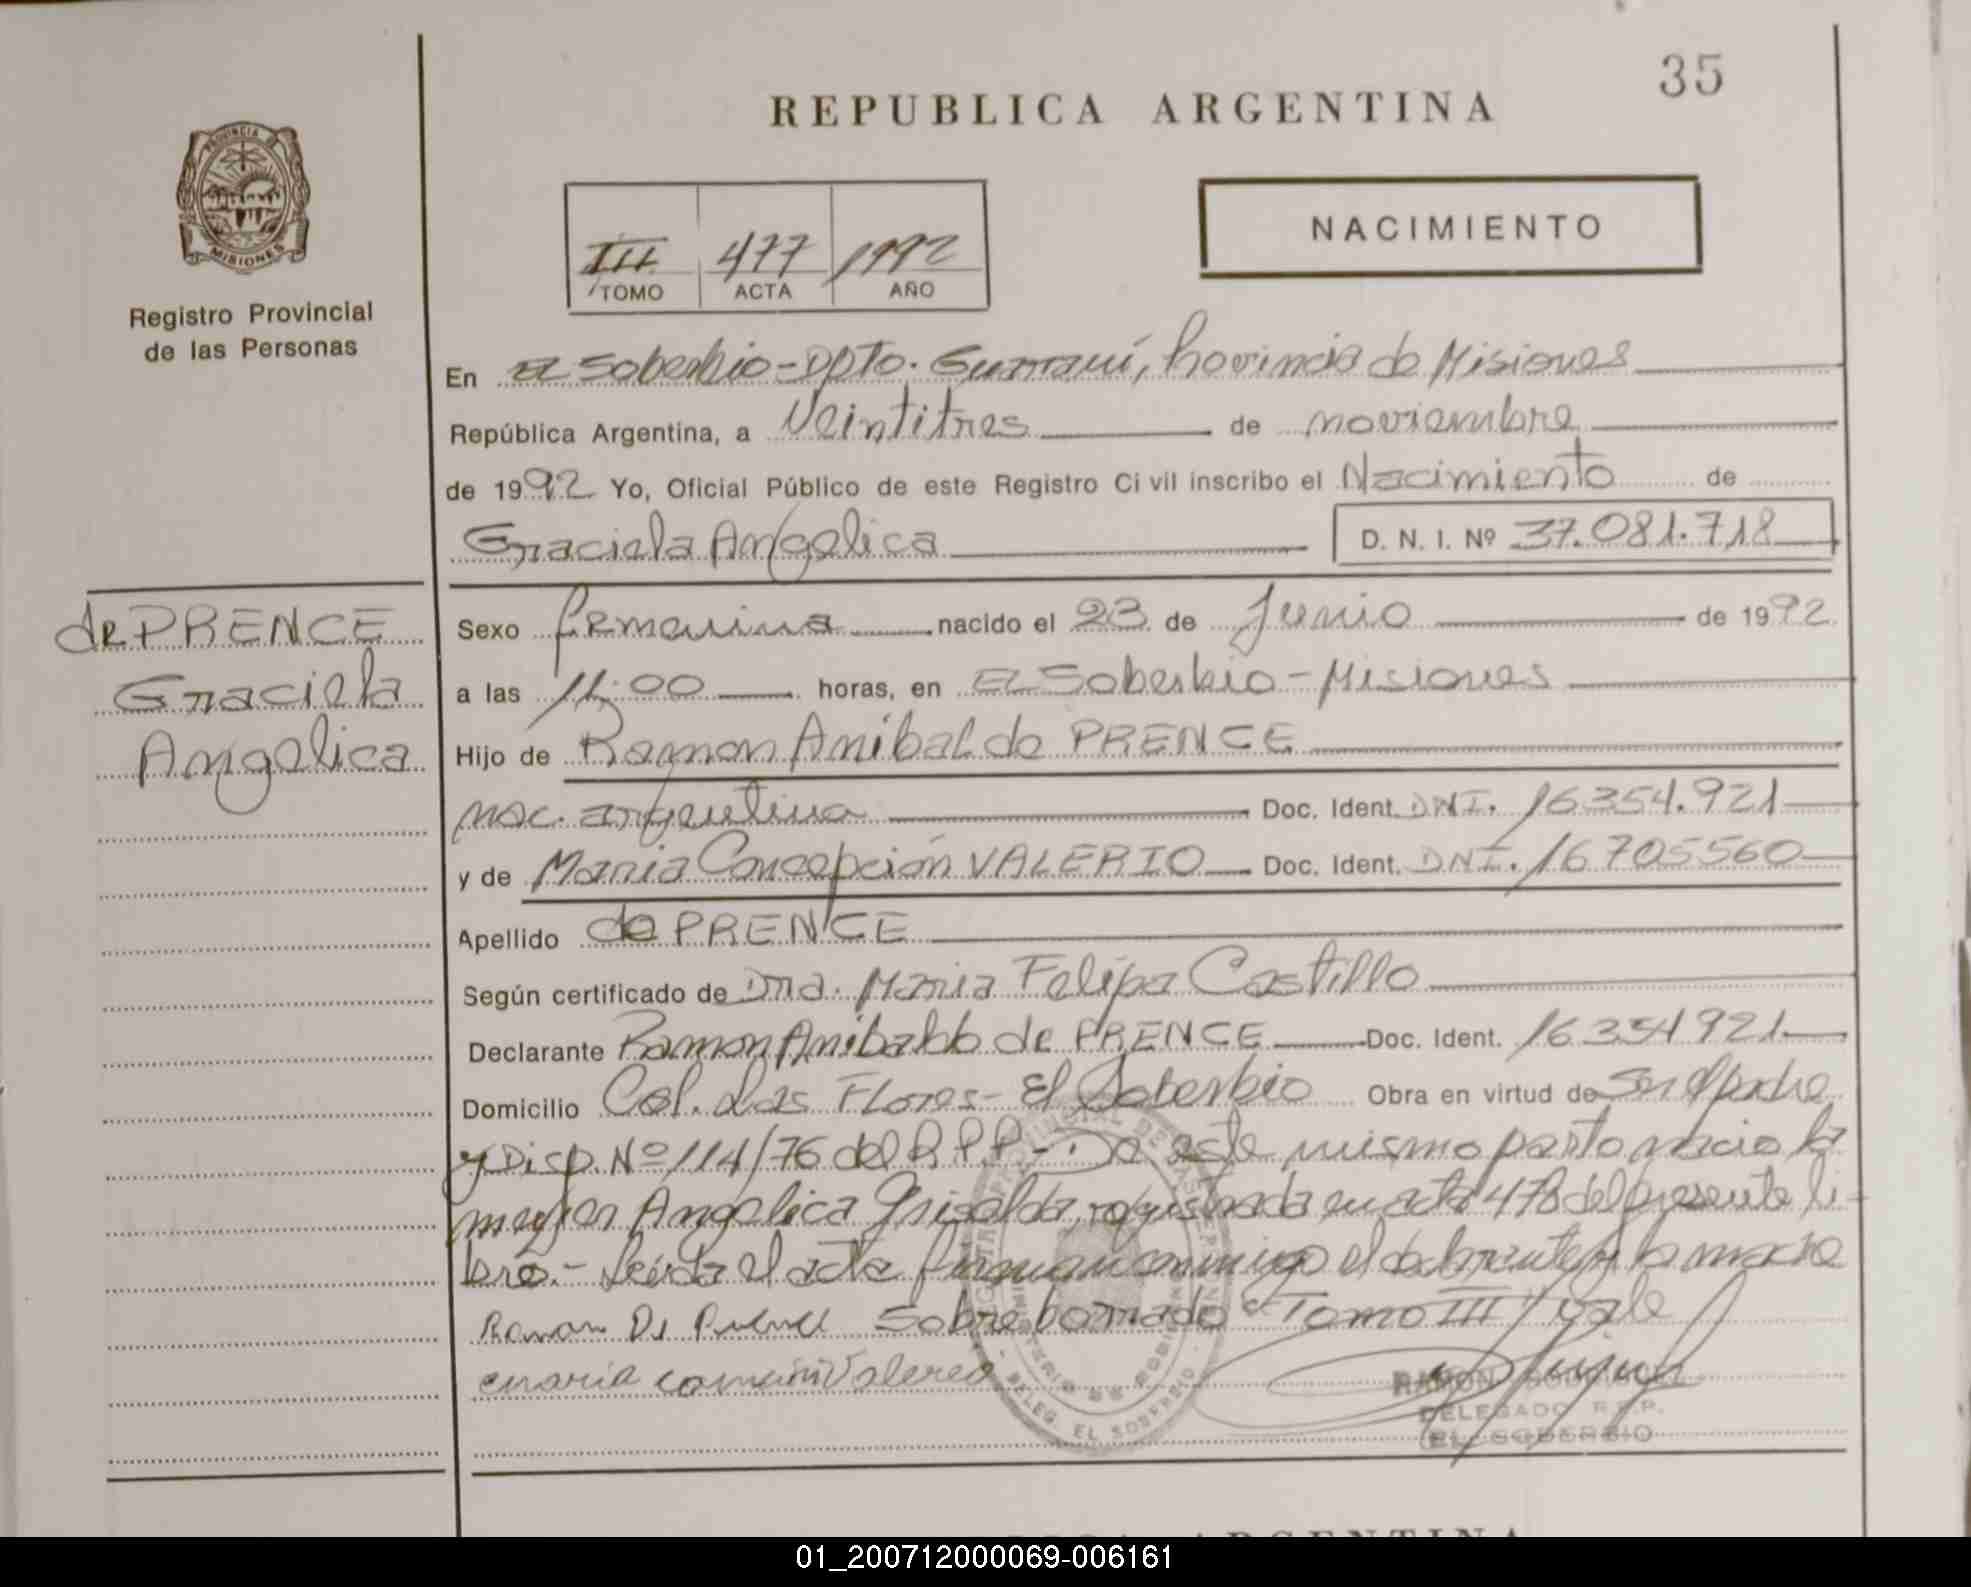 35
REPUBLICA ARGENTINA
PROVINCIA DE
MISIONES
Registro Provincial
de las Personas
III 477 1992
TOMO ACTA AÑO
NACIMIENTO
En El Soberbio-Dpto. Guaraní, Provincia de Misiones
República Argentina, a Veintitres de noviembre
de 1992 Yo, Oficial Público de este Registro Civil inscribo el Nacimiento de
Graciela Angelica D. N. I. Nº 37.081.718
de PRENCE
Graciela
Angelica
Sexo femenina nacido el 23 de Junio de 1992
a las 11:00 horas, en El Soberbio-Misiones
Hijo de Ramon Anibal de PRENCE
nac. argentina Doc. Ident. DNI. 16354.921
y de Maria Concepción VALERIO Doc. Ident. DNI. 16705560
Apellido de PRENCE
Según certificado de Dra. Maria Felipa Castillo
Declarante Ramon Anibal de PRENCE Doc. Ident. 16354921
Domicilio Col. Las Flores- El Soberbio Obra en virtud de Ser Padre
y Disp. Nº 114/76 del R.P.P.-. De este mismo parto nacio la
mujer Angelica Griselda, registrada en acta 478 del presente li-
bro.- Leída el acta firman conmigo el declarante y la madre
Ramon De Prence Sobre borrado "Tomo III" vale
maria Valerio
DELEG. EL SOBERBIO
RAMON
DELEGADO R.P.P.
EL SOBERBIO
ARGENTINA
01_200712000069-006161